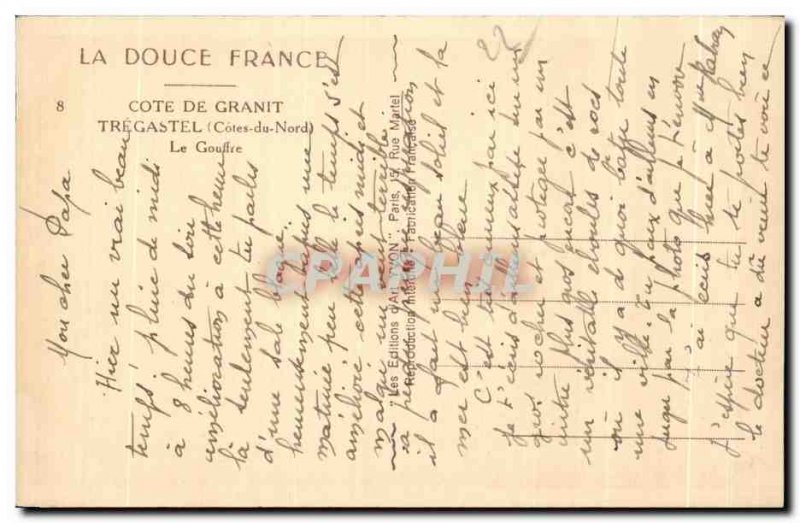 LA DOUCE FRANCE
8 COTE DE GRANIT
TRÉGASTEL (Côtes-du-Nord)
Le Gouffre
"Les Editions d'Art YVON" Paris, 15, Rue Martel
Reproduction Interdite Fabrication Française
CPAPHIL
22
Mon cher Papa
Hier un vrai beau
temps! pluie de midi
à 8 heures du soir
amélioration à cette heure
là seulement tu parles
d'une sale blague.
heureusement depuis une
matinée peu belle le temps s'est
amélioré cette après midi et
malgré un vent terrible
sa
il a fait un beau soleil et la
mer est bien
C'est curieux par ici
je t'écris d'
gros rocher et protégé par un
autre plus gros encore c'est
un véritable éboulis de rocs
où il y a de quoi bâtir toute
une ville. Tu peux d'ailleurs en
juger par la photo que je t'envoie
J'ai écris hier à
J'espère que tu te portes bien
le docteur a dû venir te voir ce